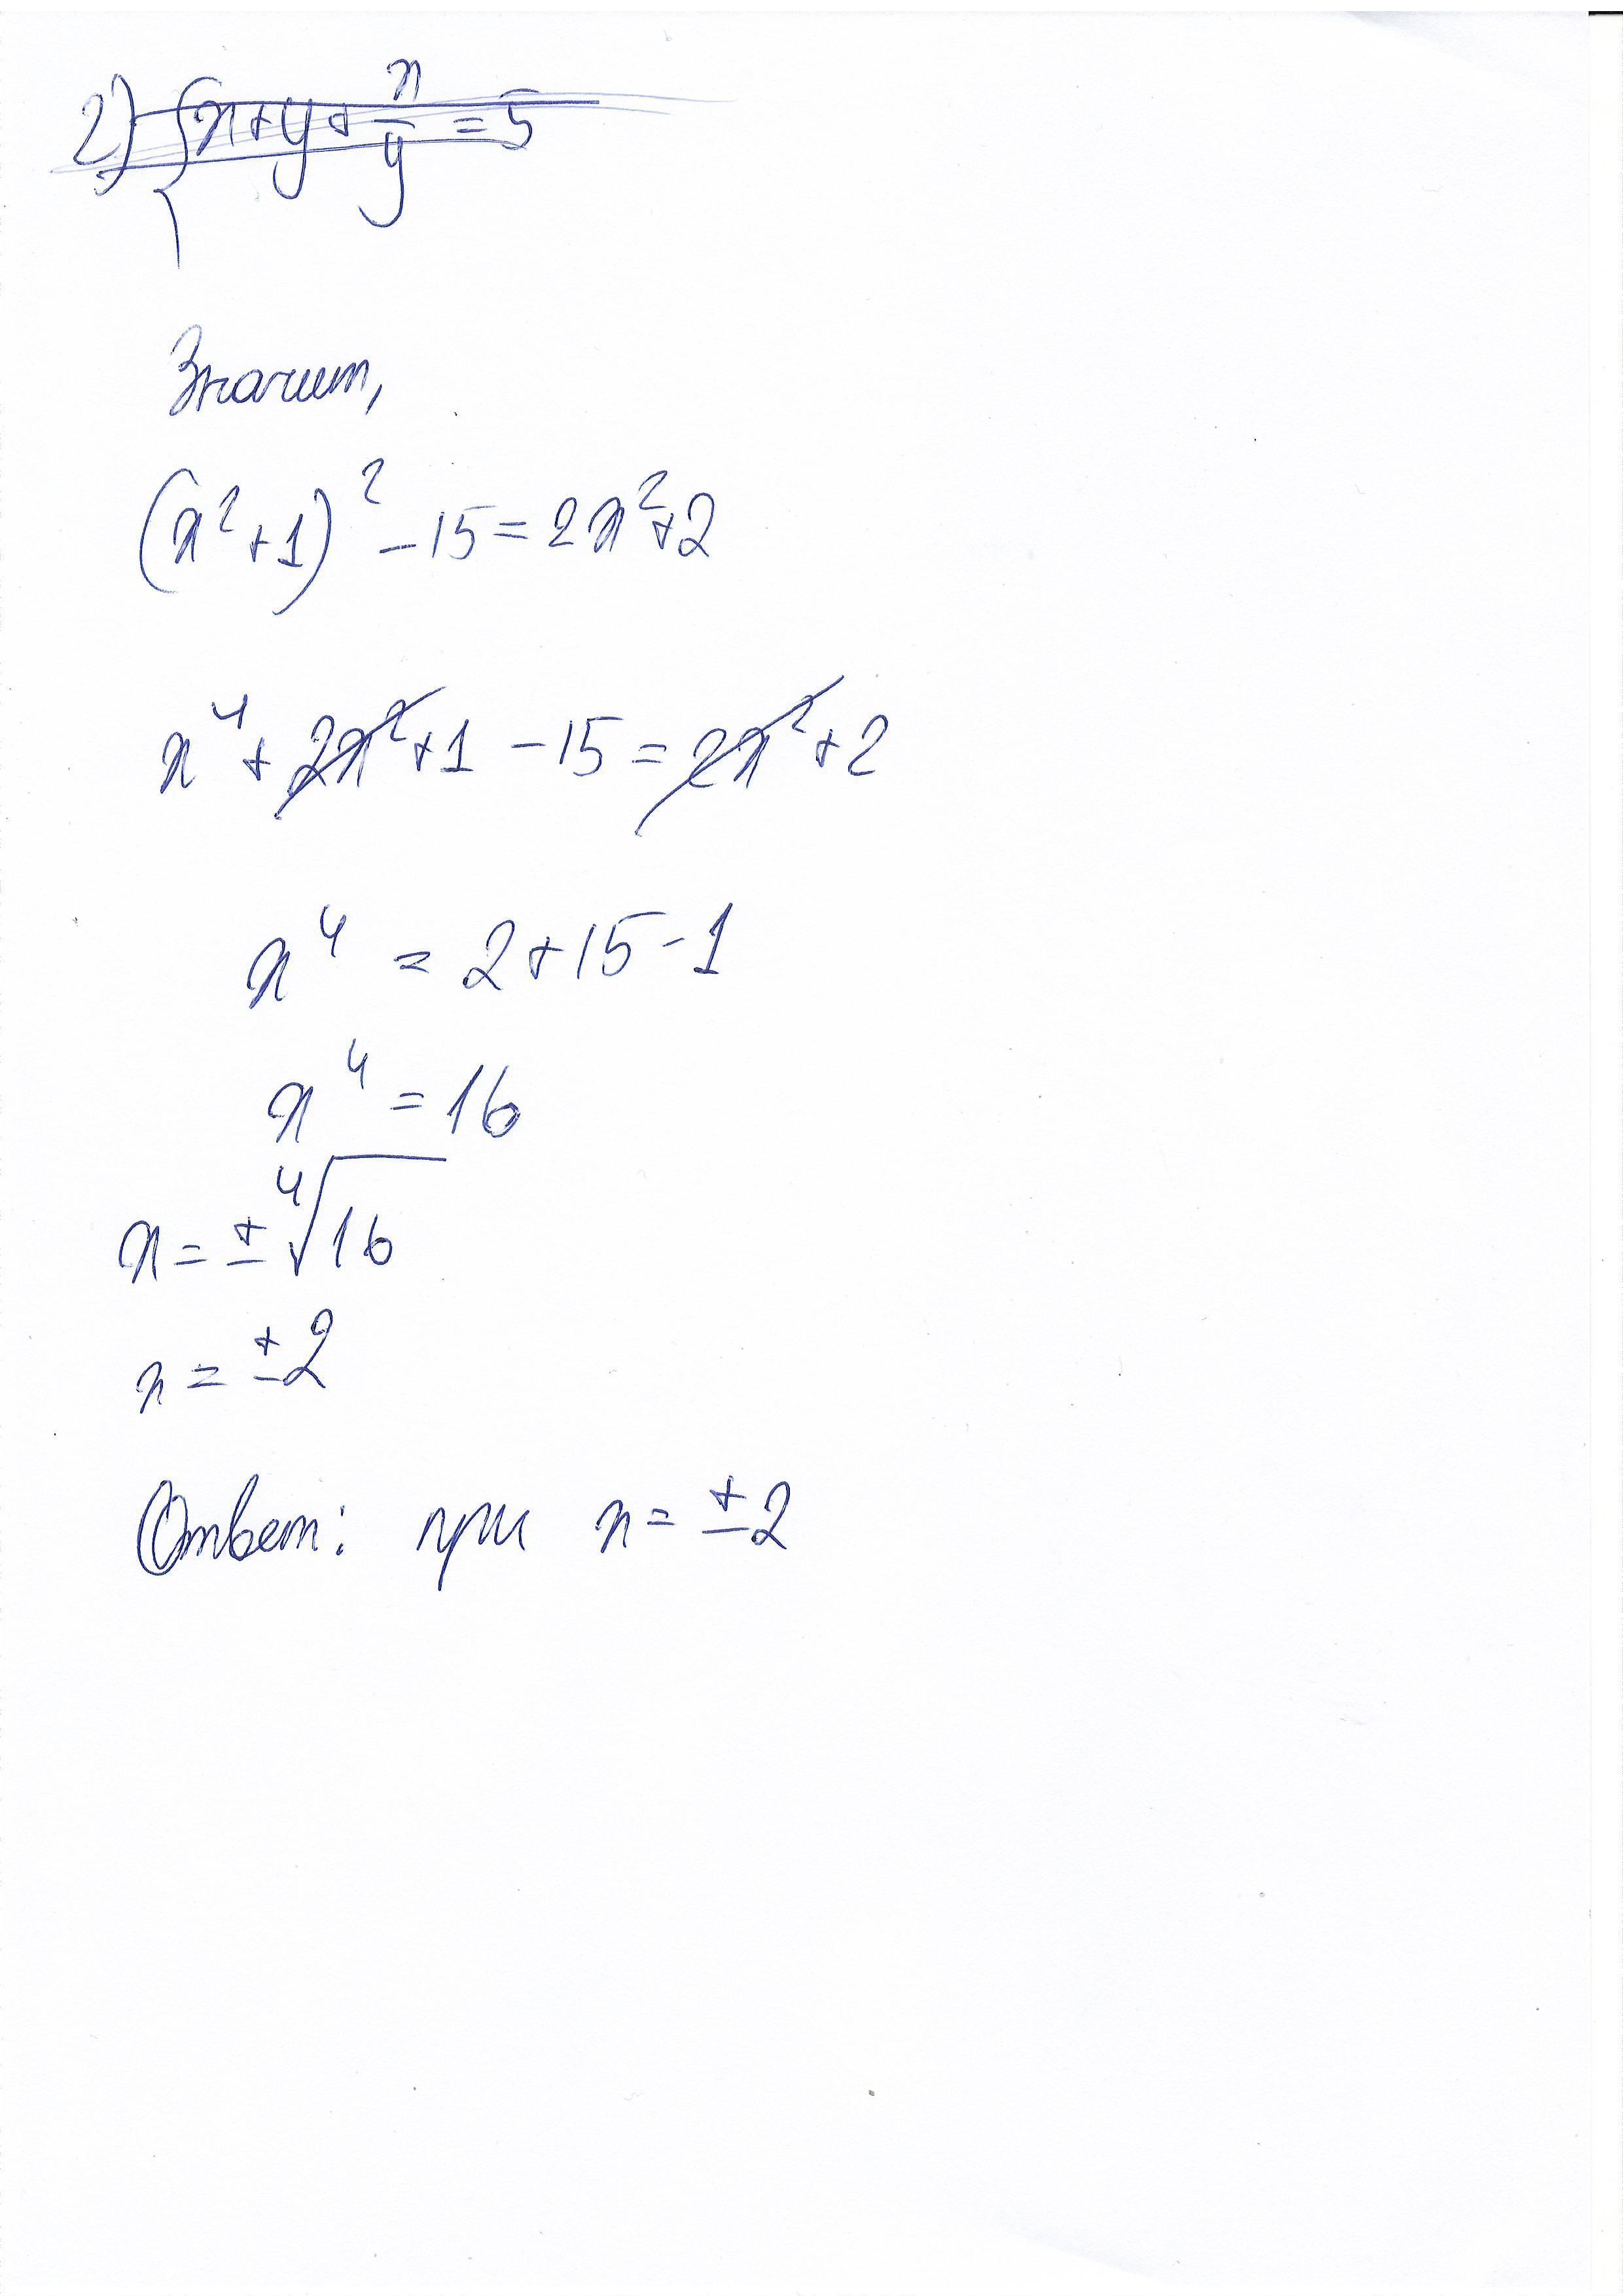 2) { x+y+x/y=5
Значит,
(x²+1)²-15=2x²+2
x⁴+2x²+1-15=2x²+2
x⁴=2+15-1
x⁴=16
x=±⁴√16
x=±2
Ответ: при x=±2